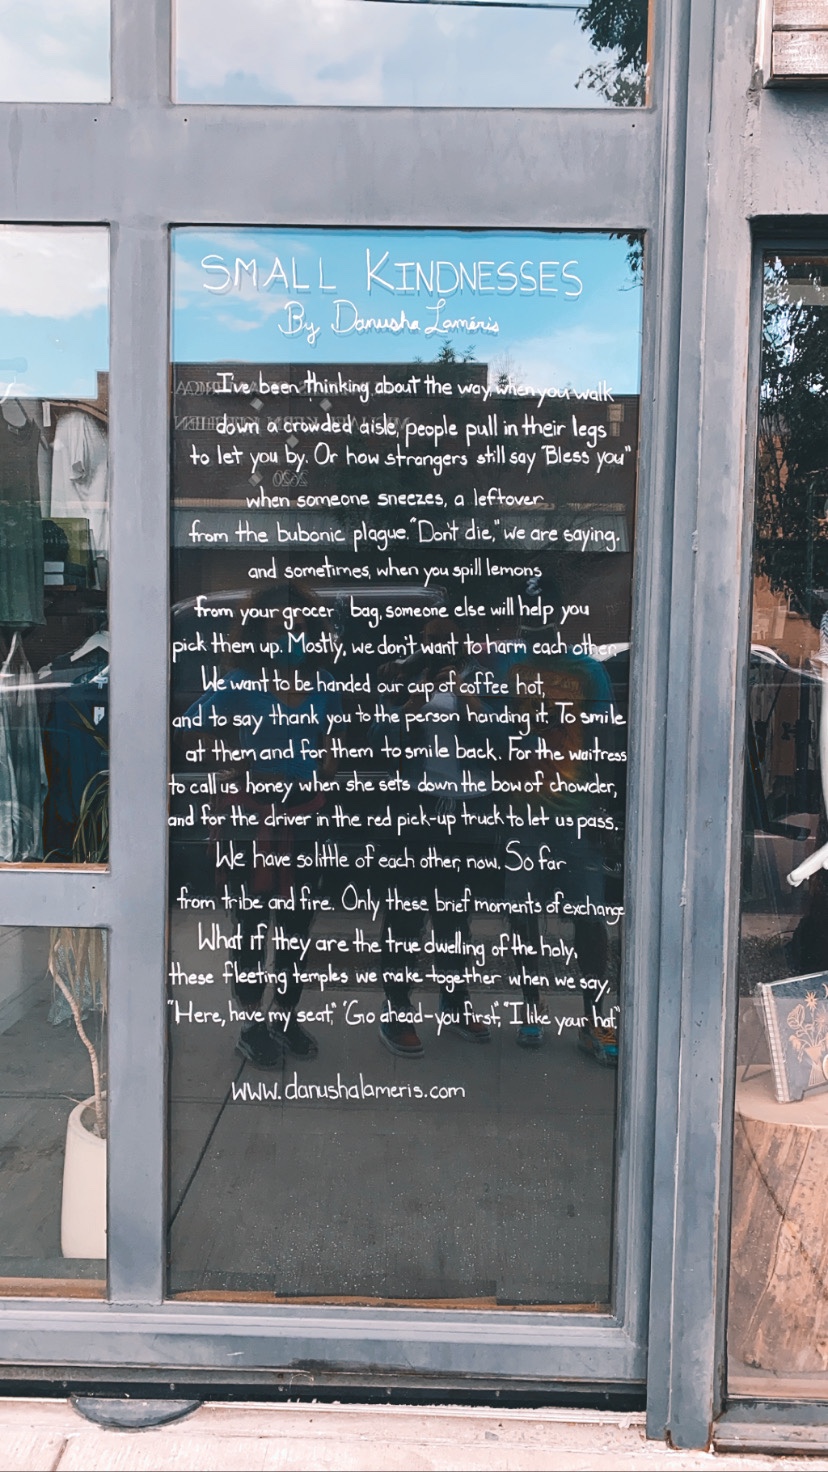 SMALL KINDNESSES
By Danusha Laméris
I've been thinking about the way when you walk
down a crowded aisle, people pull in their legs
to let you by. Or how strangers still say "Bless you"
when someone sneezes, a leftover
from the bubonic plague. "Don't die," we are saying.
and sometimes, when you spill lemons
from your grocer bag, someone else will help you
pick them up. Mostly, we don't want to harm each other.
We want to be handed our cup of coffee hot,
and to say thank you to the person handing it. To smile
at them and for them to smile back. For the waitress
to call us honey when she sets down the bow of chowder,
and for the driver in the red pick-up truck to let us pass.
We have so little of each other, now. So far
from tribe and fire. Only these brief moments of exchange
What if they are the true dwelling of the holy,
these fleeting temples we make together when we say,
"Here, have my seat," "Go ahead-you first," "I like your hat."
www.danushalameris.com
2620